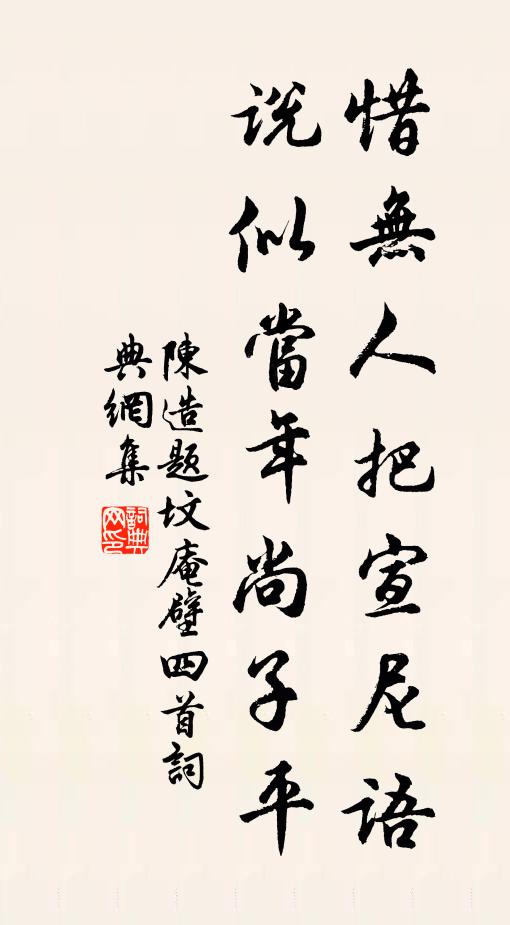 惜無人把宣尼語
說似當年尚子平
陳造題坟庵壁四首詞
典網集
詞典網印